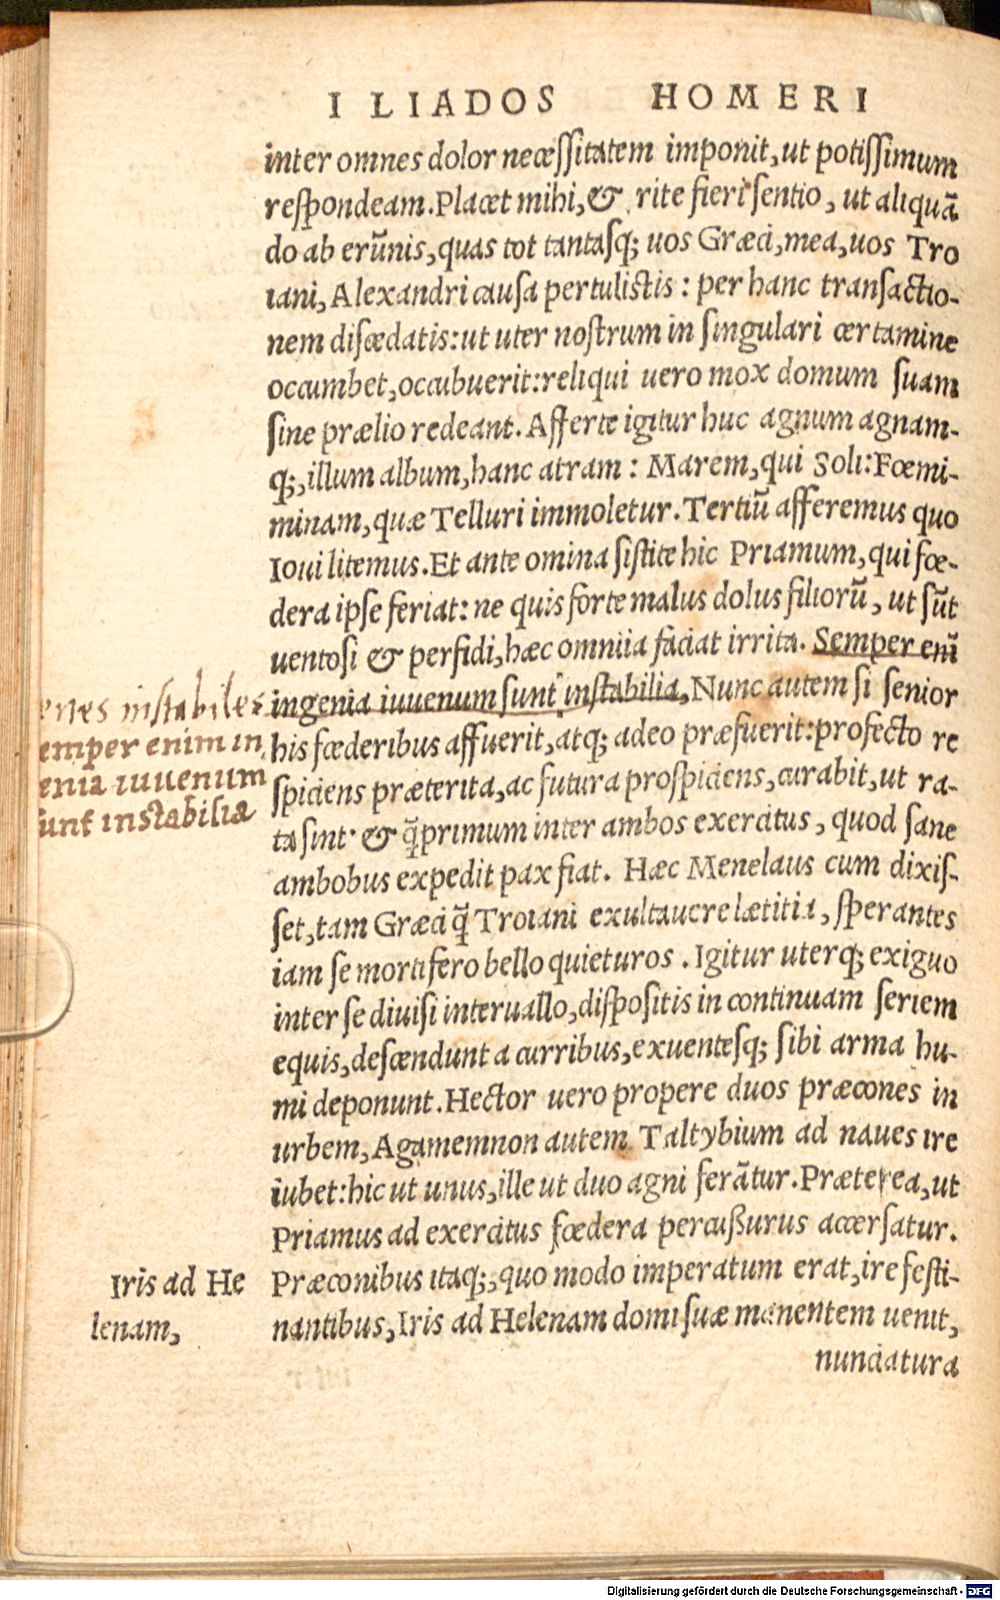 ILIADOS HOMERI
inter omnes dolor necessitatem imponit, ut potissimum
respondeam. Placet mihi, & rite fieri sentio, ut aliquã
do ab erũnis, quas tot tantasq; uos Græci, mea, uos Tro
iani, Alexandri causa pertulistis: per hanc transactio-
nem discedatis: ut uter nostrum in singulari certamine
occumbet, occubuerit: reliqui uero mox domum suam
sine prælio redeant. Afferte igitur huc agnum agnam-
q;, illum album, hanc atram: Marem, qui Soli: Fœmi-
minam, quæ Telluri immoletur. Tertiũ afferemus quo
Ioui litemus. Et ante omina sistite hic Priamum, qui fœ-
dera ipse feriat: ne quis forte malus dolus filiorũ, ut sũt
uentosi & perfidi, hæc omniia faciat irrita. Semper eni̅
ingenia iuuenum sunt instabilia, Nunc autem si senior
his fœderibus affuerit, atq; adeo præfuerit: profecto re
spiciens præterita, ac futura prospiciens, curabit, ut ra-
ta sint· & q̃primum inter ambos exercitus, quod sane
ambobus expedit pax fiat. Hæc Menelaus cum dixis-
set, tam Græci q̃ Troiani exultauere lætitia, sperantes
iam se mortifero bello quieturos. Igitur uterq; exiguo
inter se diuisi interuallo, dispositis in continuam seriem
equis, descendunt a curribus, exuentesq; sibi arma hu-
mi deponunt. Hector uero propere duos præcones in
urbem, Agamemnon autem Taltybium ad naues ire
iubet: hic ut unus, ille ut duo agni ferãtur. Præterea, ut
Priamus ad exercitus fœdera percußurus accersatur.
Præconibus itaq;, quo modo imperatum erat, ire festi-
nantibus, Iris ad Helenam domi suæ manentem uenit,
nunciatura
enes instabiles
emper enim in
enia iuuenum
sunt instabilia
Iris ad He
lenam,
Digitalisierung gefördert durch die Deutsche Forschungsgemeinschaft - DFG